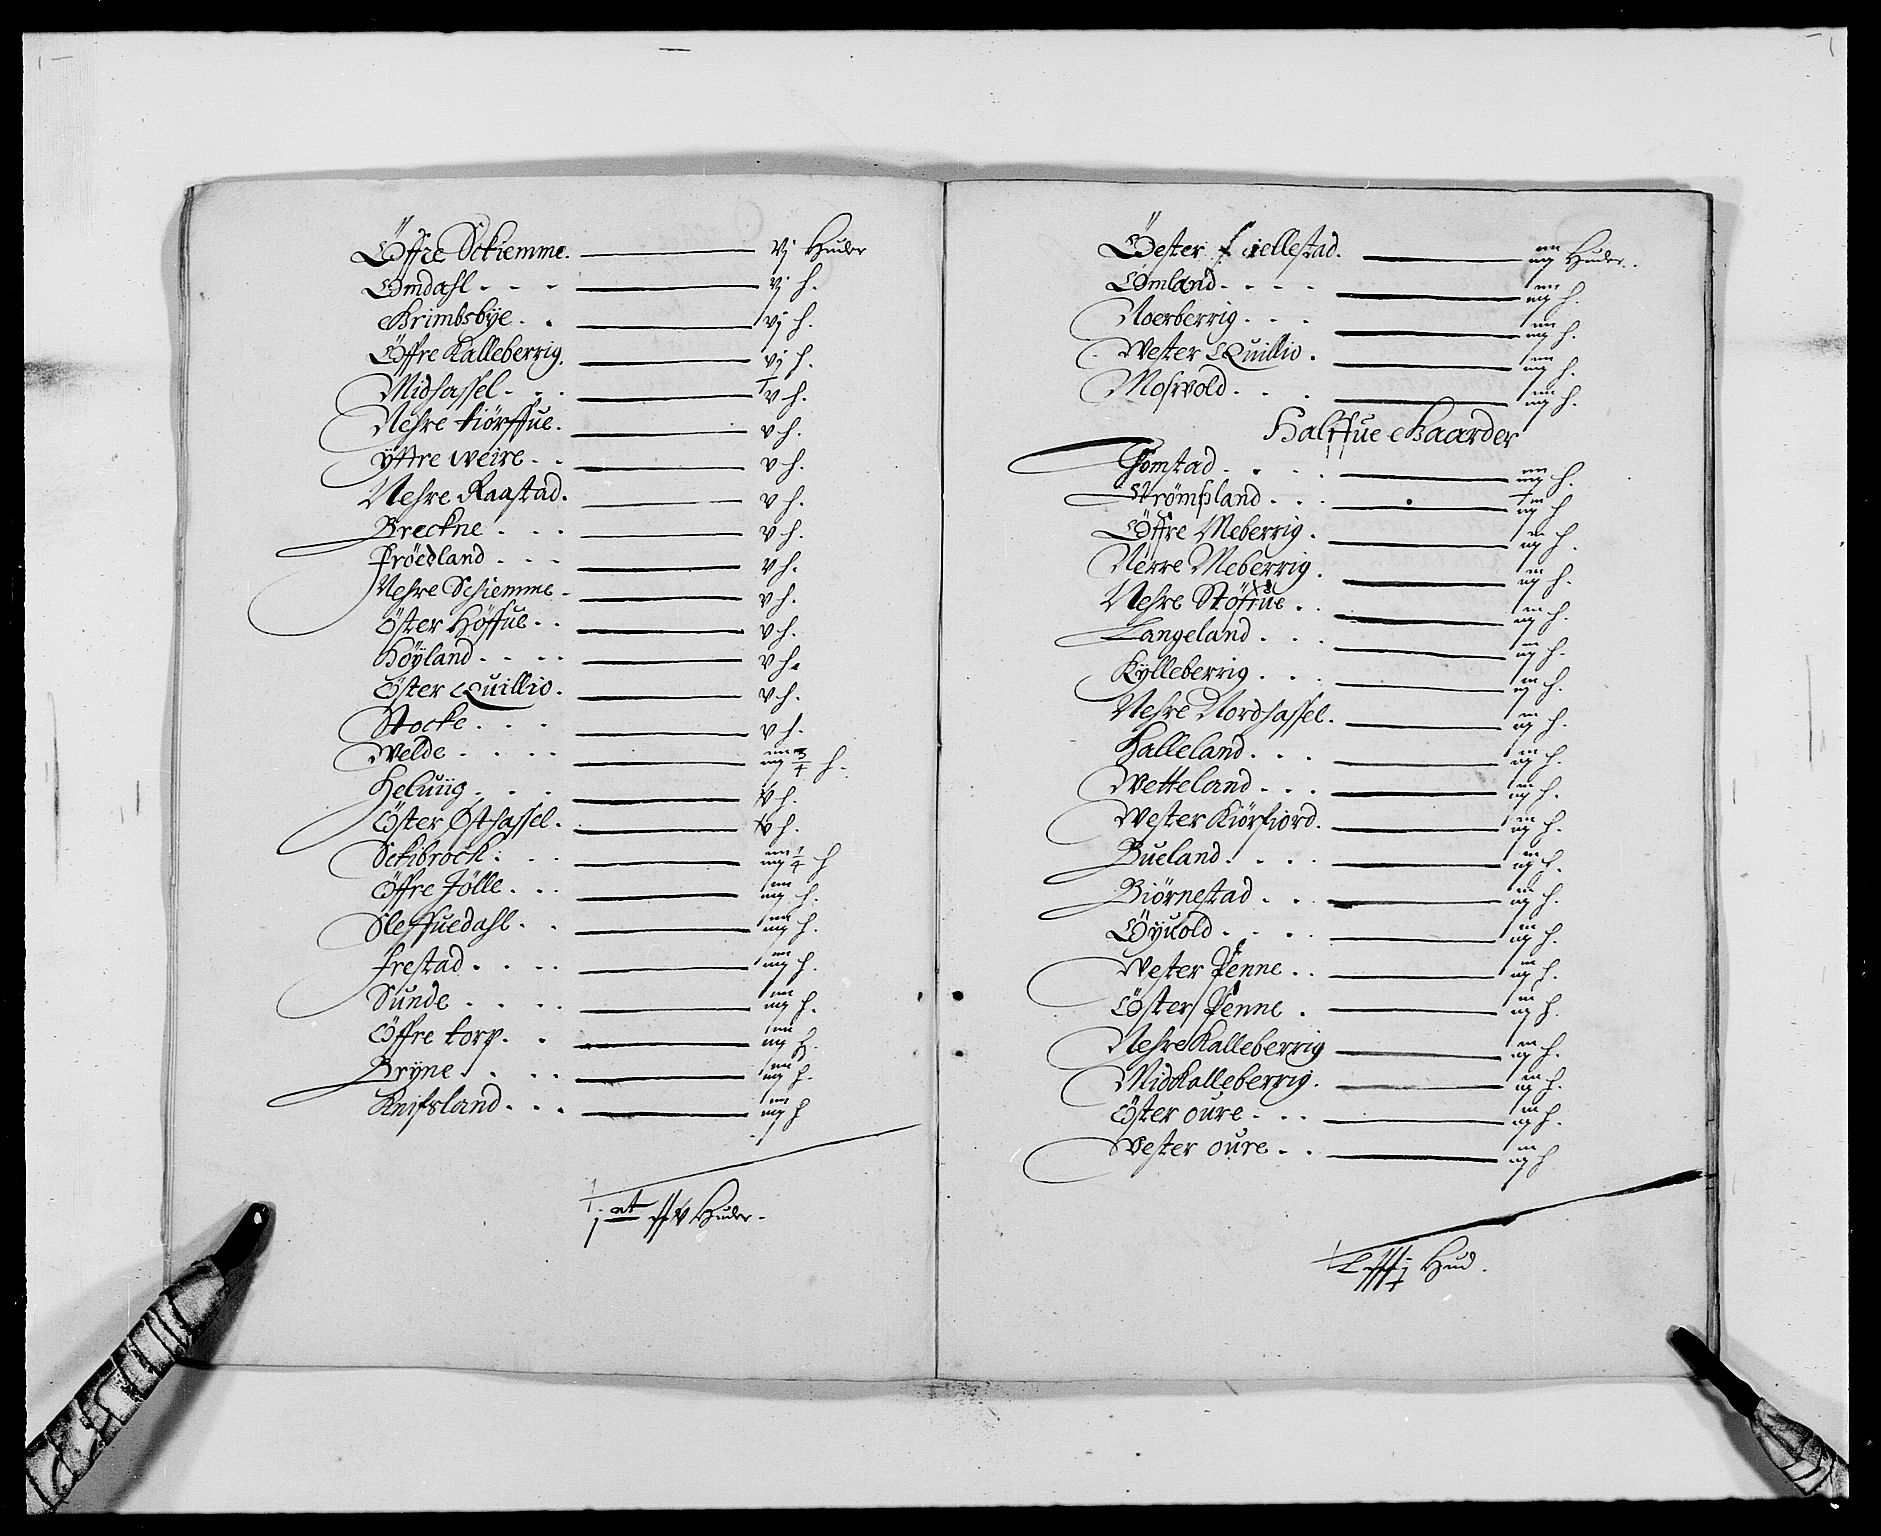 Öffre Sckiemme. vj Huder
Omdahl vj h.
Grimbsbÿe vj h.
Öffre Kalleberrig. vj h.
Midhassel v h.
Nehre Kiörffue. v h.
ÿttre weire v h.
Nehre Raastad. v h.
Breckne v h.
Fröedland v h.
Nehre Schiemme v h.
Öster Höffue v h.
Höÿland v h.
Öster Quillio. v h.
Stocke v h.
Welde iiij 3/4 h.
Heluiig v h.
Öster Østhassel. v h.
Sckibrock iiij 1/4 h
Öffre Jölle iiij h.
Sleffuedahl iiij h.
Frestad iiij h.
Sunde iiij h.
Öffre torp iiij h.
Brÿne iiij h.
Knifsland iiij h
Huder
Öester fiellestad. iiij Huder.
Omland iiij h.
Noerberrig iiij h.
Wester Quillio. iiij h.
Moswold iiij h.
Halffue Gaarder
Tomstad iiij h.
Strømsland h
Öffre Meberrig. iij h.
Nerre Meberrig. iij h.
Nehre Stöffue iij h.
Langeland iij h.
Kÿlleberrig iij h.
Nehre Nordhassel. iij h.
Halleland iij h.
Wetteland iij h.
Wester Kiörfiord. iij h.
Bueland iij h.
Biörnestad iij h.
Öÿuold iij h.
Wester Penne iij h.
Öster Penne iij h.
Nehre Kalleberrig iij h.
Midkalleberrig. iij h.
Öster oure iij h.
Wester oure iij h
Hud.